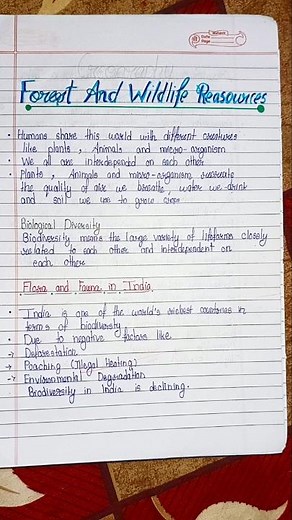 Forest And Wildlife Reasources
• Humans share this world with different creatures
like plants, Animals and micro-organism
• We all are interdepended on each other
• Plants, Animals and micro-organism recreate
the quality of air we breathe, water we drink
and soil we use to grow crops
Biological Diversity
Biodiversity means the large variety of lifeforms closely
related to each other and interdependent on
each other
Flora and Fauna in India
• India is one of the world's richest countries in
terms of biodiversity
• Due to negative factors like
→ Deforestation
→ Poaching (Illegal Hunting)
→ Environmental Degradation
Biodiversity in India is declining.